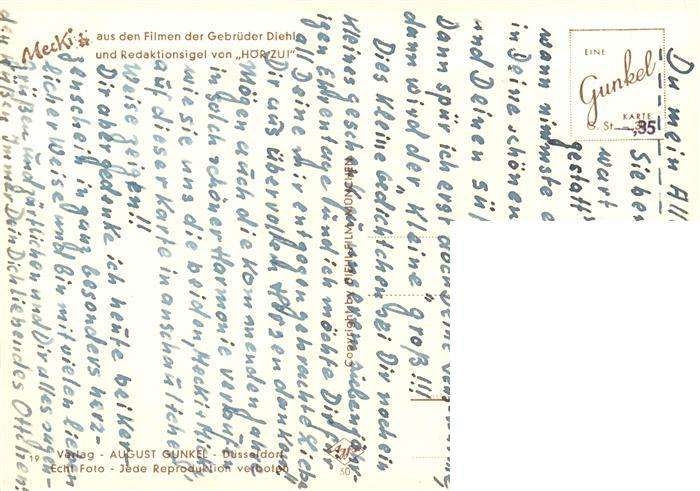 Mecki
aus den Filmen der Gebrüder Diehl
und Redaktionsigel von „HÖR ZU!"
EINE
Gunkel
KARTE
-,35
Du mein All
Sieben
wart
gestatt
wann nimmste
in Deine schönen
und Deinen sü
Dann spür ich erst
dann wird der Kleine „groß"!!!
Dies kleine Gedichtchen sei Dir noch ein
kleines Geschenk
ich möchte Dir für
all Deine mir entgegengebrachte Liebe
Dir aus übervollem Herzen danken.
Mögen auch die kommenden Jahre
in solch schöner Harmonie verlaufen
wie sie uns die beiden, Mecki + Micki,
auf dieser Karte in anschaulicher
Weise zeigen!!
Dir aber gedenke ich heute bei Ker-
zenschein ganz besonders herz-
licher Weise und bin mit vielen lieben
Grüßen und Dir alles
Immer Dein Dich liebendes
Copyright by DIEHL-FILM, MÜNCHEN
19
Verlag - AUGUST GUNKEL - Düsseldorf
Echt Foto - Jede Reproduktion verboten
Agfa
30